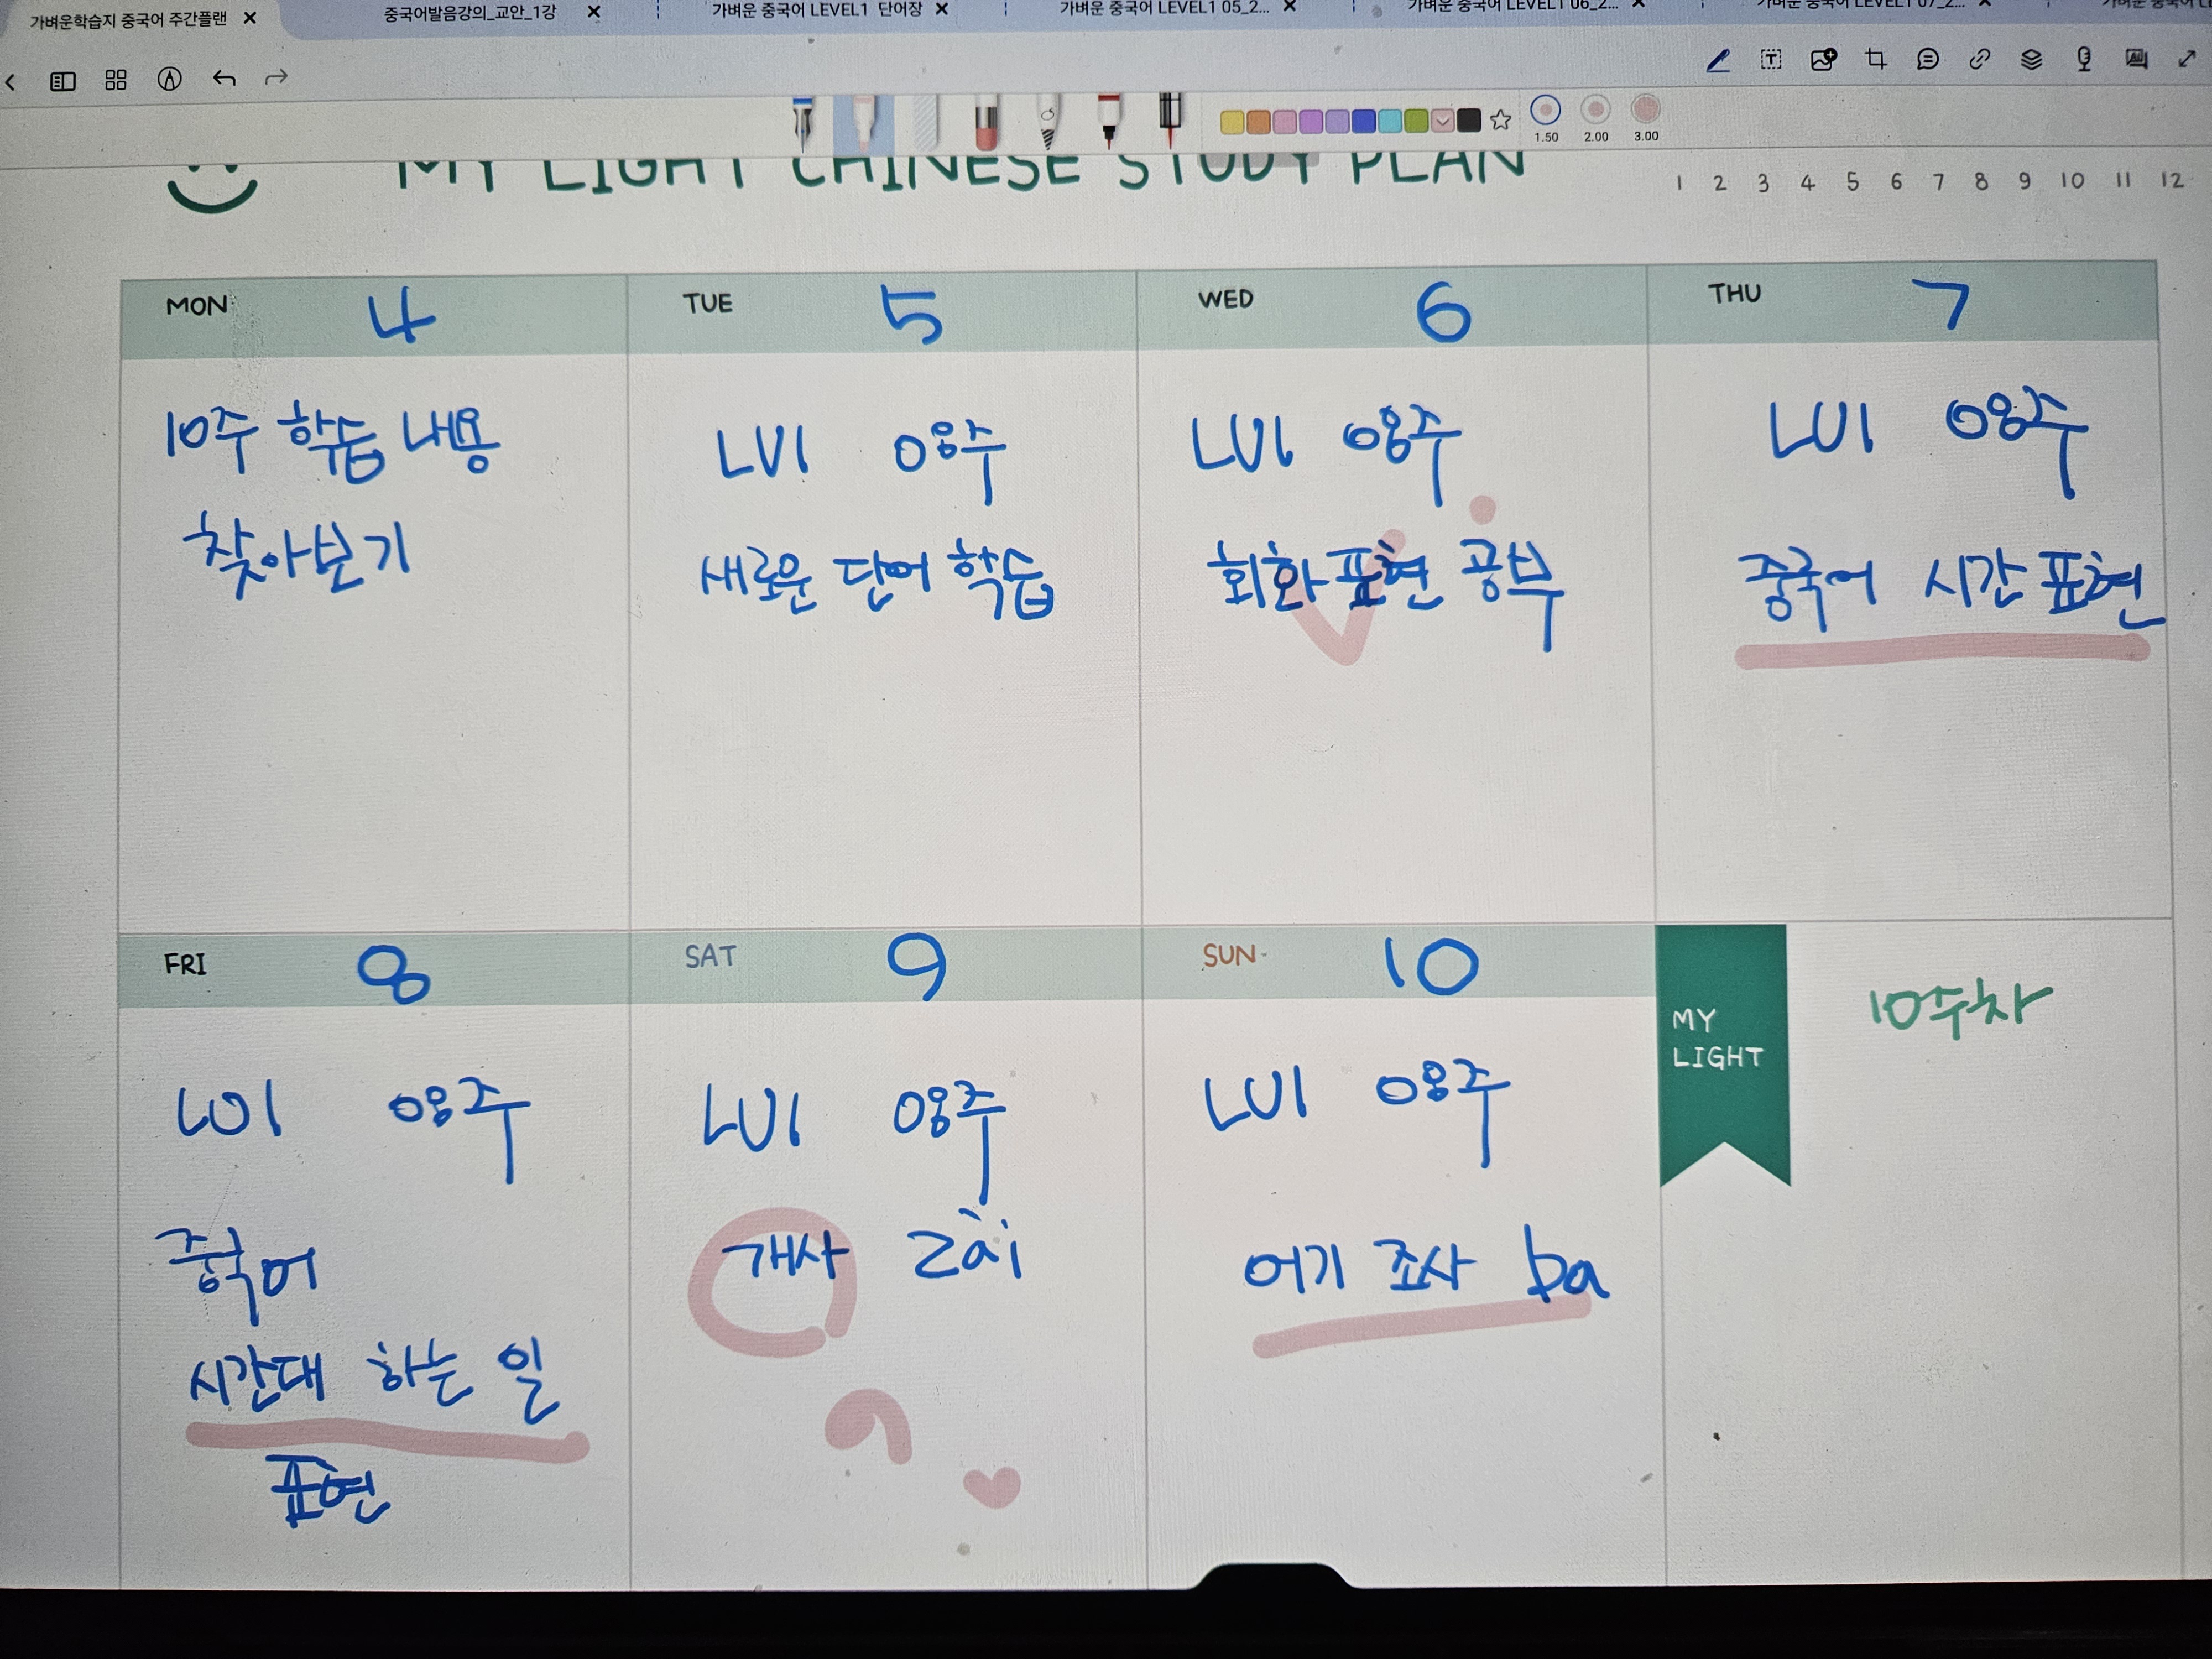 가벼운학습지 중국어 주간플랜 ✕
중국어발음강의_교안_1강 ✕
가벼운 중국어 LEVEL1 단어장 ✕
가벼운 중국어 LEVEL1 05_2... ✕
가벼운 중국어 LEVEL1 06_2... ✕
가벼운 중국어 LEVEL1 07_2... ✕
1.50 2.00 3.00
MY LIGHT CHINESE STUDY PLAN
1 2 3 4 5 6 7 8 9 10 11 12
MON 4
10주 학습 내용
찾아보기
TUE 5
LV1 08주
새로운 단어 학습
WED 6
LV1 08주
회화 표현 공부
THU 7
LV1 08주
중국어 시간 표현
FRI 8
LV1 08주
중국어
시간대 하는 일
표현
SAT 9
LV1 08주
개사 zài
SUN 10
LV1 08주
어기 조사 ba
MY
LIGHT
10주차